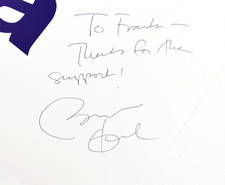 To Frank –
Thanks for the
support!